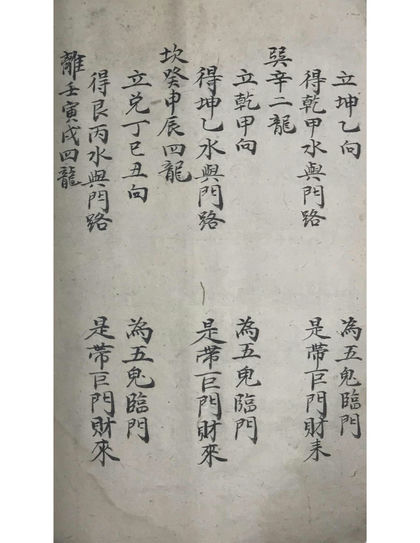 立坤乙向 為五鬼臨門
得乾甲水與門路 是帶巨門財来
巽辛二龍
立乾甲向 為五鬼臨門
得坤乙水與門路 是帶巨門財來
坎癸申辰四龍
立兌丁巳丑向 為五鬼臨門
得艮丙水與門路 是帶巨門財來
離壬寅戌四龍